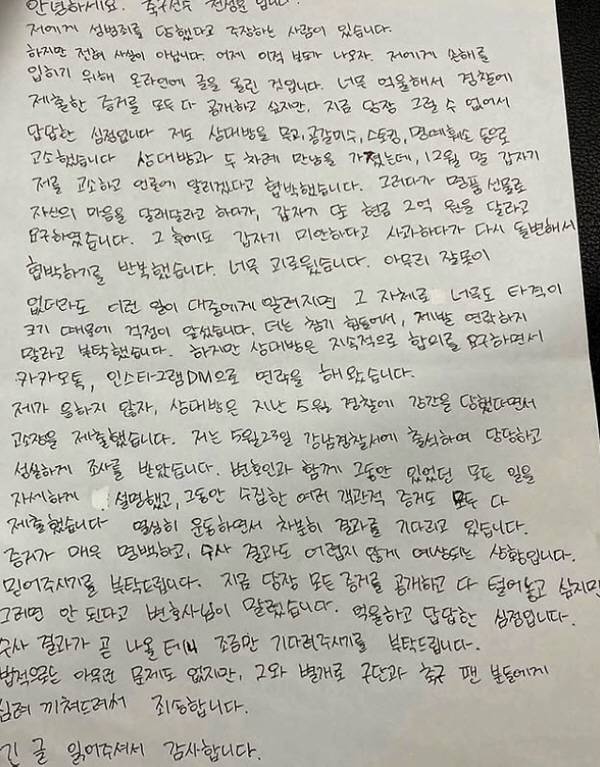 안녕하세요. 축구선수 입니다.
저에게 성범죄를 당했다고 주장하는 사람이 있습니다.
하지만 전혀 사실이 아닙니다. 어제 이적 보도가 나오자, 저에게 손해를
입히기 위해 온라인에 글을 올린 것입니다. 너무 억울해서 경찰에
제출한 증거를 모두 다 공개하고 싶지만, 지금 당장 그럴 수 없어서
답답한 심정입니다 저도 상대방을 무고, 공갈미수, 스토킹, 명예훼손 등으로
고소했습니다 상대방과 두 차례 만남을 가졌는데, 12월 말 갑자기
저를 고소하고 언론에 알리겠다고 협박했습니다. 그러다가 명품 선물로
자신의 마음을 달래달라고 하다가, 갑자기 또 현금 2억 원을 달라고
요구하였습니다. 그 후에도 갑자기 미안하다고 사과하다가 다시 돌변해서
협박하기를 반복했습니다. 너무 괴로웠습니다. 아무리 잘못이
없더라도 이런 일이 대중에게 알려지면 그 자체로 너무도 타격이
크기 때문에 걱정이 앞섰습니다. 더는 참기 힘들어서, 제발 연락하지
말라고 부탁했습니다. 하지만 상대방은 지속적으로 합의를 요구하면서
카카오톡, 인스타그램DM으로 연락을 해왔습니다.
제가 응하지 않자, 상대방은 지난 5월 경찰에 강간을 당했다면서
고소장을 제출했습니다. 저는 5월23일 강남경찰서에 출석하여 당당하고
성실하게 조사를 받았습니다. 변호인과 함께 그동안 있었던 모든 일을
자세하게 설명했고, 그동안 수집한 여러 객관적 증거도 모두 다
제출했습니다 열심히 운동하면서 차분히 결과를 기다리고 있습니다.
증거가 매우 명백하고, 수사 결과도 어렵지 않게 예상되는 상황입니다.
믿어주시기를 부탁드립니다. 지금 당장 모든 증거를 공개하고 다 털어놓고 싶지만
그러면 안 된다고 변호사님이 말렸습니다. 억울하고 답답한 심정입니다.
수사 결과가 곧 나올 테니 조금만 기다려주시기를 부탁드립니다.
법적으로는 아무런 문제도 없지만, 그와 별개로 구단과 축구 팬 분들에게
심려 끼쳐드려서 죄송합니다.
긴 글 읽어주셔서 감사합니다.